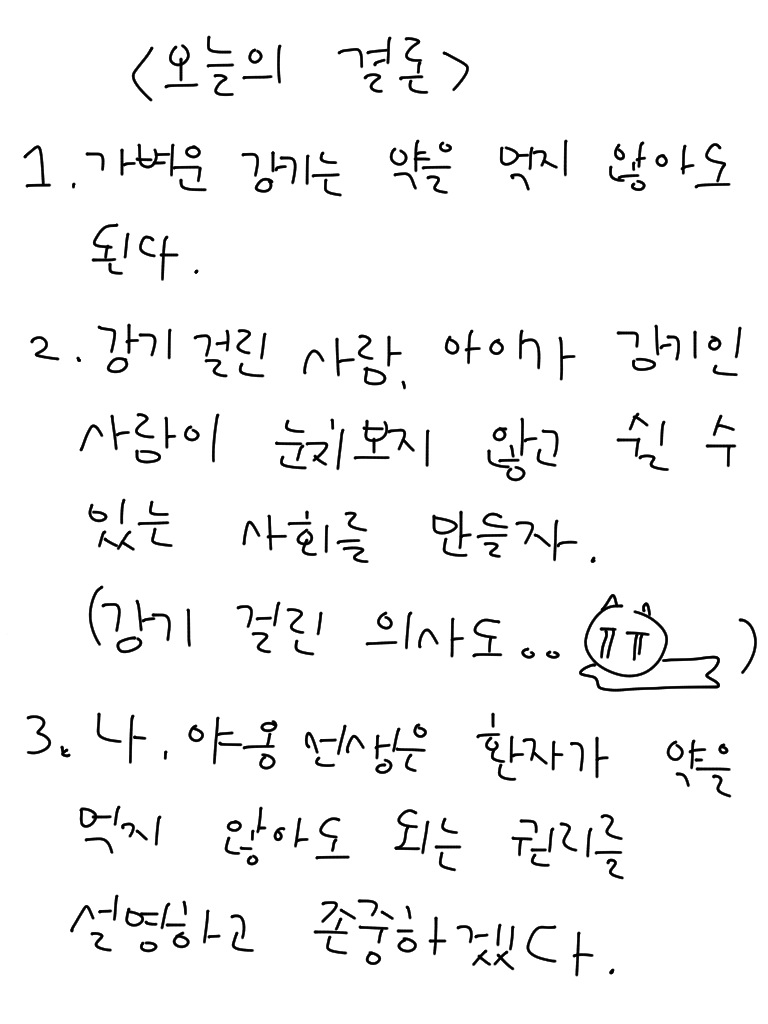 <오늘의 결론>
1. 가벼운 감기는 약을 먹지 않아도
된다.
2. 감기 걸린 사람, 아이가 감기인
사람이 눈치보지 않고 쉴 수
있는 사회를 만들자.
(감기 걸린 의사도.. ㅠㅠ)
3. 나, 야옹 선생은 환자가 약을
먹지 않아도 되는 권리를
설명하고 존중하겠다.